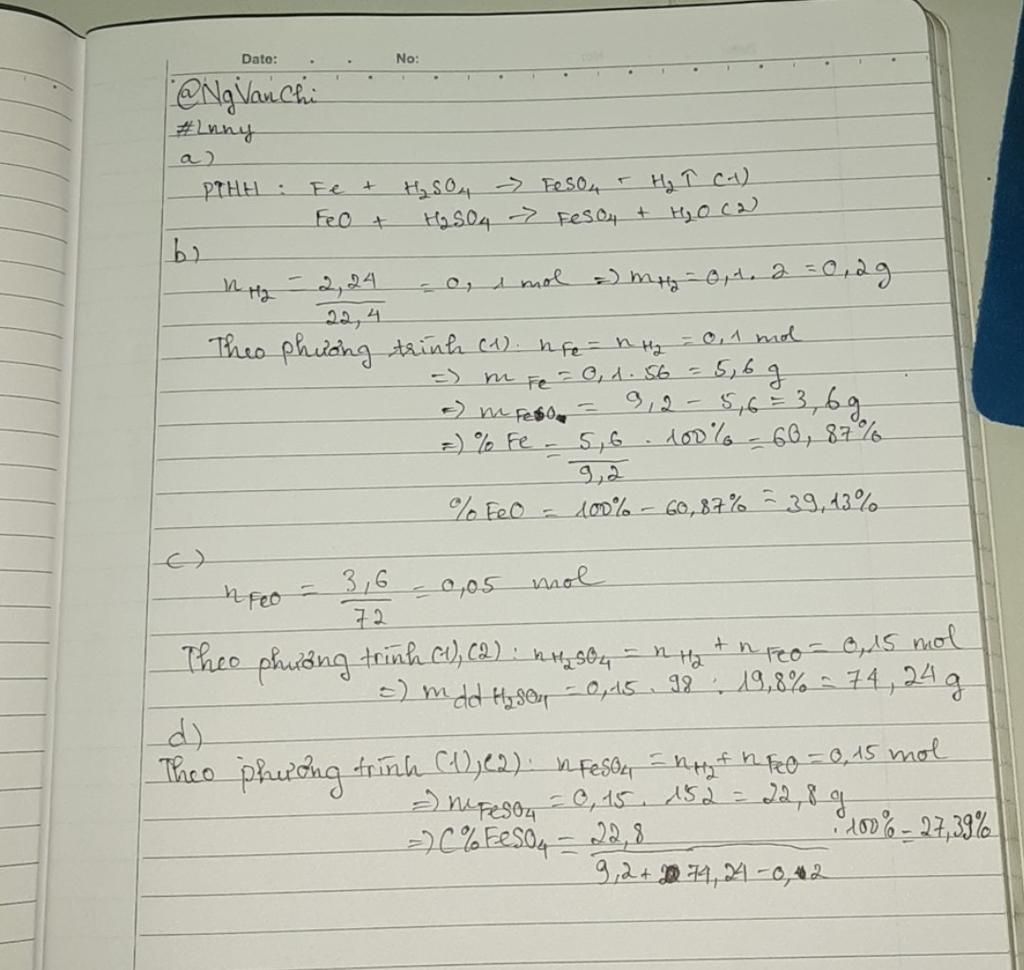 Date: . . No:
@NgVanChi
#Lnny
a)
PTHH : Fe + H₂SO₄ -> FeSO₄ - H₂↑ (1)
FeO + H₂SO₄ -> FeSO₄ + H₂O (2)
b)
n H₂ = 2,24 / 22,4 = 0,1 mol => m H₂ = 0,1. 2 = 0,2g
Theo phương trình (1): n Fe = n H₂ = 0,1 mol
=> m Fe = 0,1. 56 = 5,6 g
=> m FeO = 9,2 - 5,6 = 3,6g
=> % Fe = 5,6 / 9,2 . 100% = 60,87%
% FeO = 100% - 60,87% = 39,13%
c)
n FeO = 3,6 / 72 = 0,05 mol
Theo phương trình (1), (2) : n H₂SO₄ = n H₂ + n FeO = 0,15 mol
=> m dd H₂SO₄ = 0,15 . 98 : 19,8% = 74,24 g
d)
Theo phương trình (1), (2): n FeSO₄ = n H₂ + n FeO = 0,15 mol
=> m FeSO₄ = 0,15. 152 = 22,8 g
=> C% FeSO₄ = 22,8 / 9,2 + 74,24 - 0,2 . 100% = 27,39%